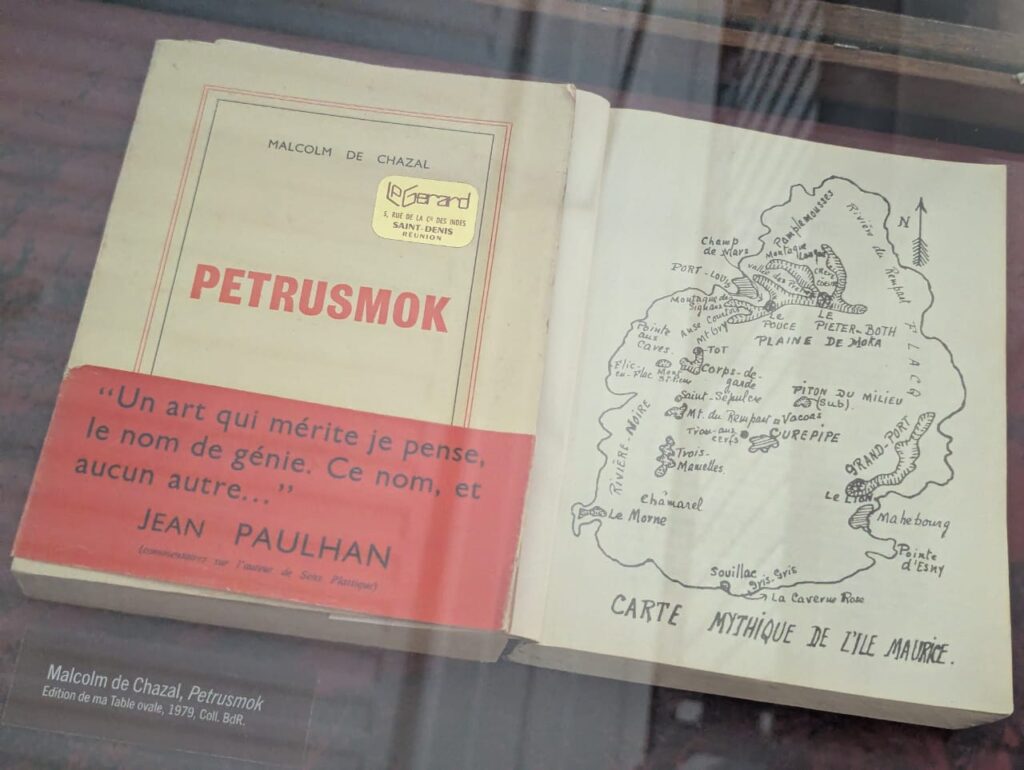 MALCOLM DE CHAZAL
LeGerard
5, RUE DE LA Cie DES INDES
SAINT-DENIS
RÉUNION
PETRUSMOK
“Un art qui mérite je pense,
le nom de génie. Ce nom, et
aucun autre...”
JEAN PAULHAN
(commentaires sur l'auteur de Sens Plastique)
Malcolm de Chazal, Petrusmok
Edition de ma Table ovale, 1979, Coll. BdR.
N
Pamplemousses
Rivière du Rempart
Champ
de Mars
Montagne
Longue
PORT-LOUIS
Vallée des
CŒUR
Montagne des
Signaux
Anse Courtois
Mt Ory
LE
POUCE
LE
PIETER-BOTH
FLACQ
PLAINE DE MOKA
Pointe
aux
Caves
TOT
Flic-
en-Flac
Corps-de-
garde
Saint-Sépulcre
PITON DU MILIEU
(Sub).
Mt. du Rempart
Vacoas
Trou-aux-
cerfs
CUREPIPE
Trois-
Mamelles.
RIVIÈRE-NOIRE
GRAND-PORT
Le Lion
Châmarel
Le Morne
Mahebourg
Pointe
d'Esny
Souillac
Gris-Gris
La Caverne Rose
CARTE MYTHIQUE DE L'ILE MAURICE.